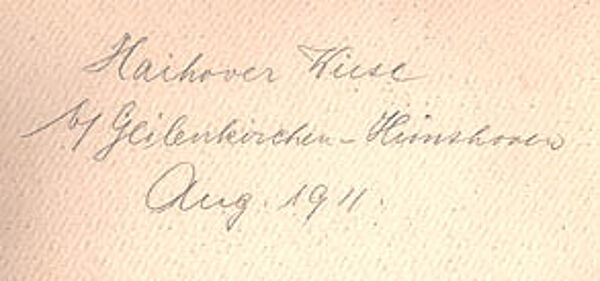 Haihover Wiese
b/ Geilenkirchen - Hünshoven
Aug. 1911.